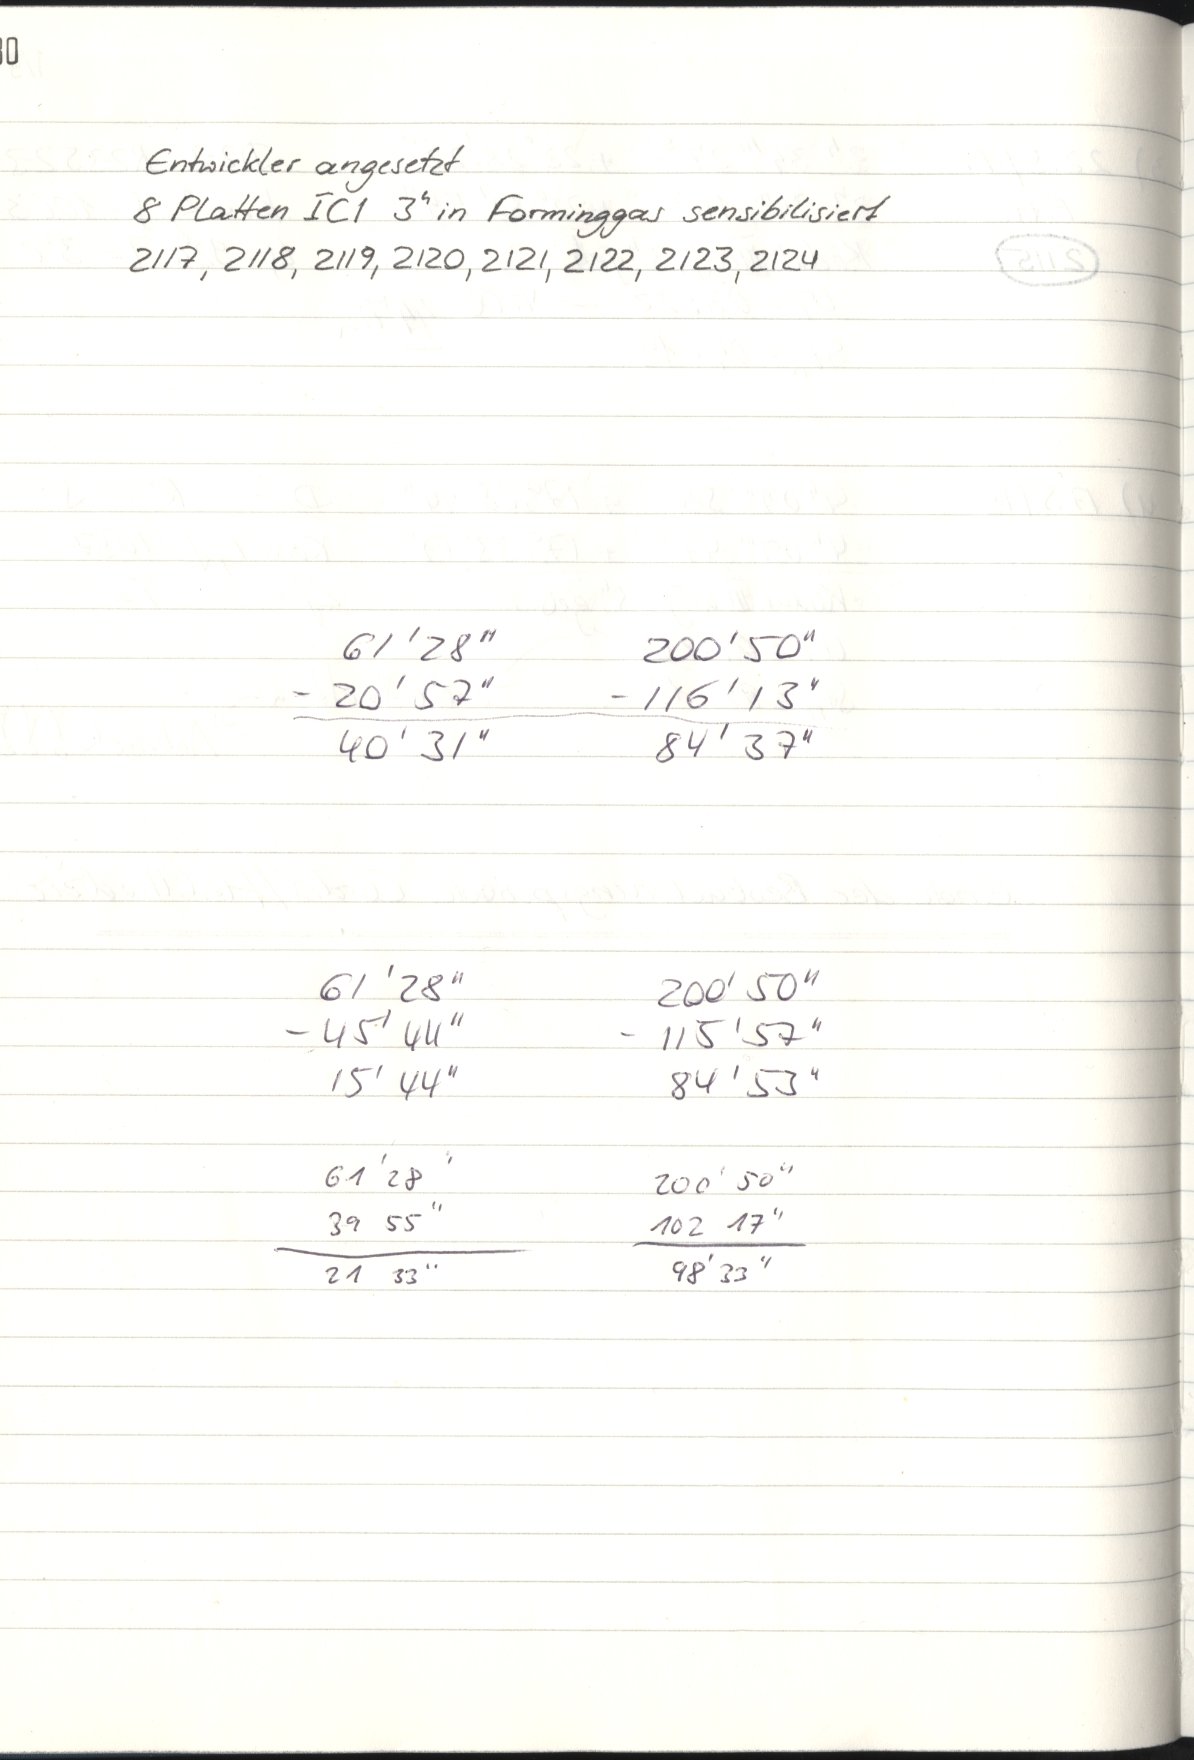 30
Entwickler angesetzt
8 Platten IC1 3" in Forminggas sensibilisiert
2117, 2118, 2119, 2120, 2121, 2122, 2123, 2124
61'28" 200'50"
- 20'57" - 116'13"
40'31" 84'37"
61'28" 200'50"
- 45'44" - 115'57"
15'44" 84'53"
61'28' 200'50"
39 55" 102 17"
21 33" 98'33"